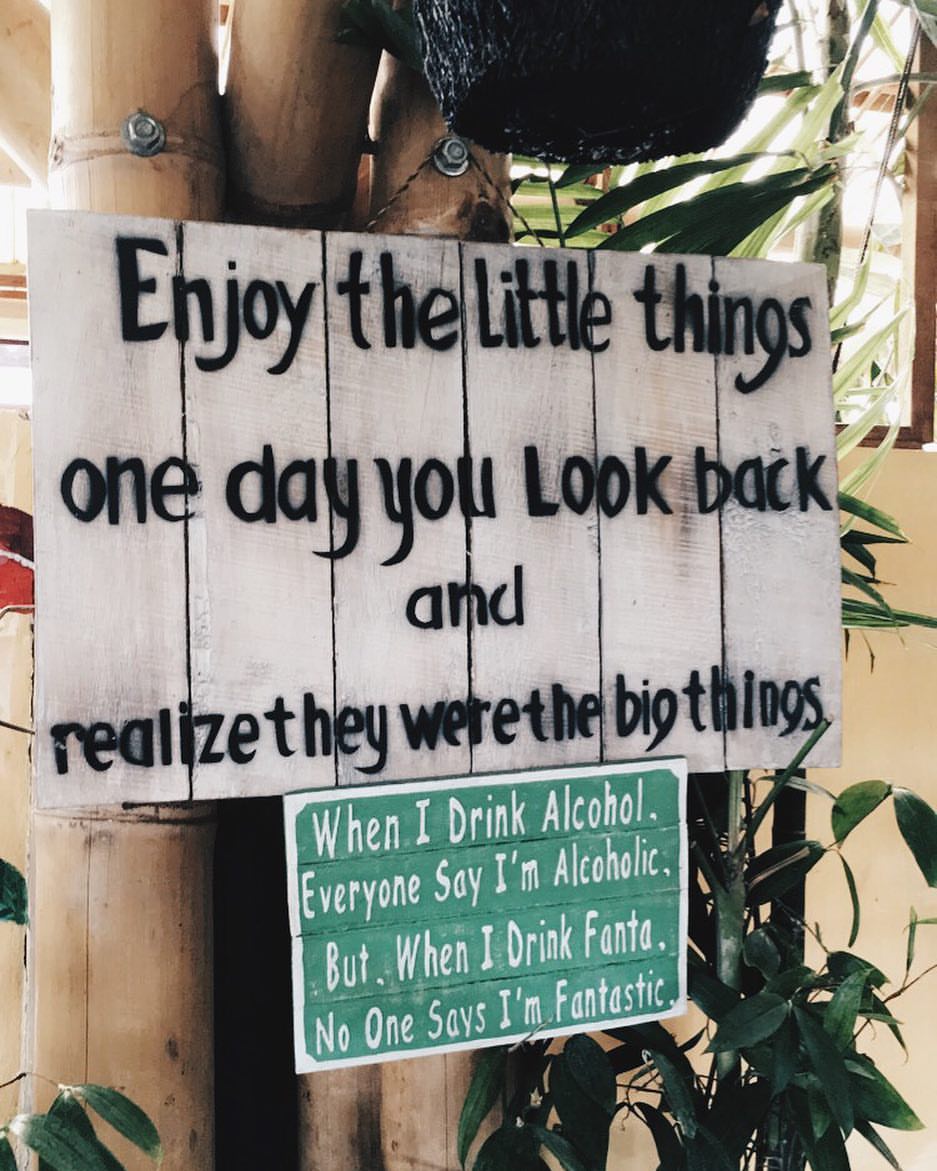 Enjoy the Little things
one day you Look back
and
realize they were the big things
When I Drink Alcohol,
Everyone Say I'm Alcoholic,
But, When I Drink Fanta,
No One Says I'm Fantastic,